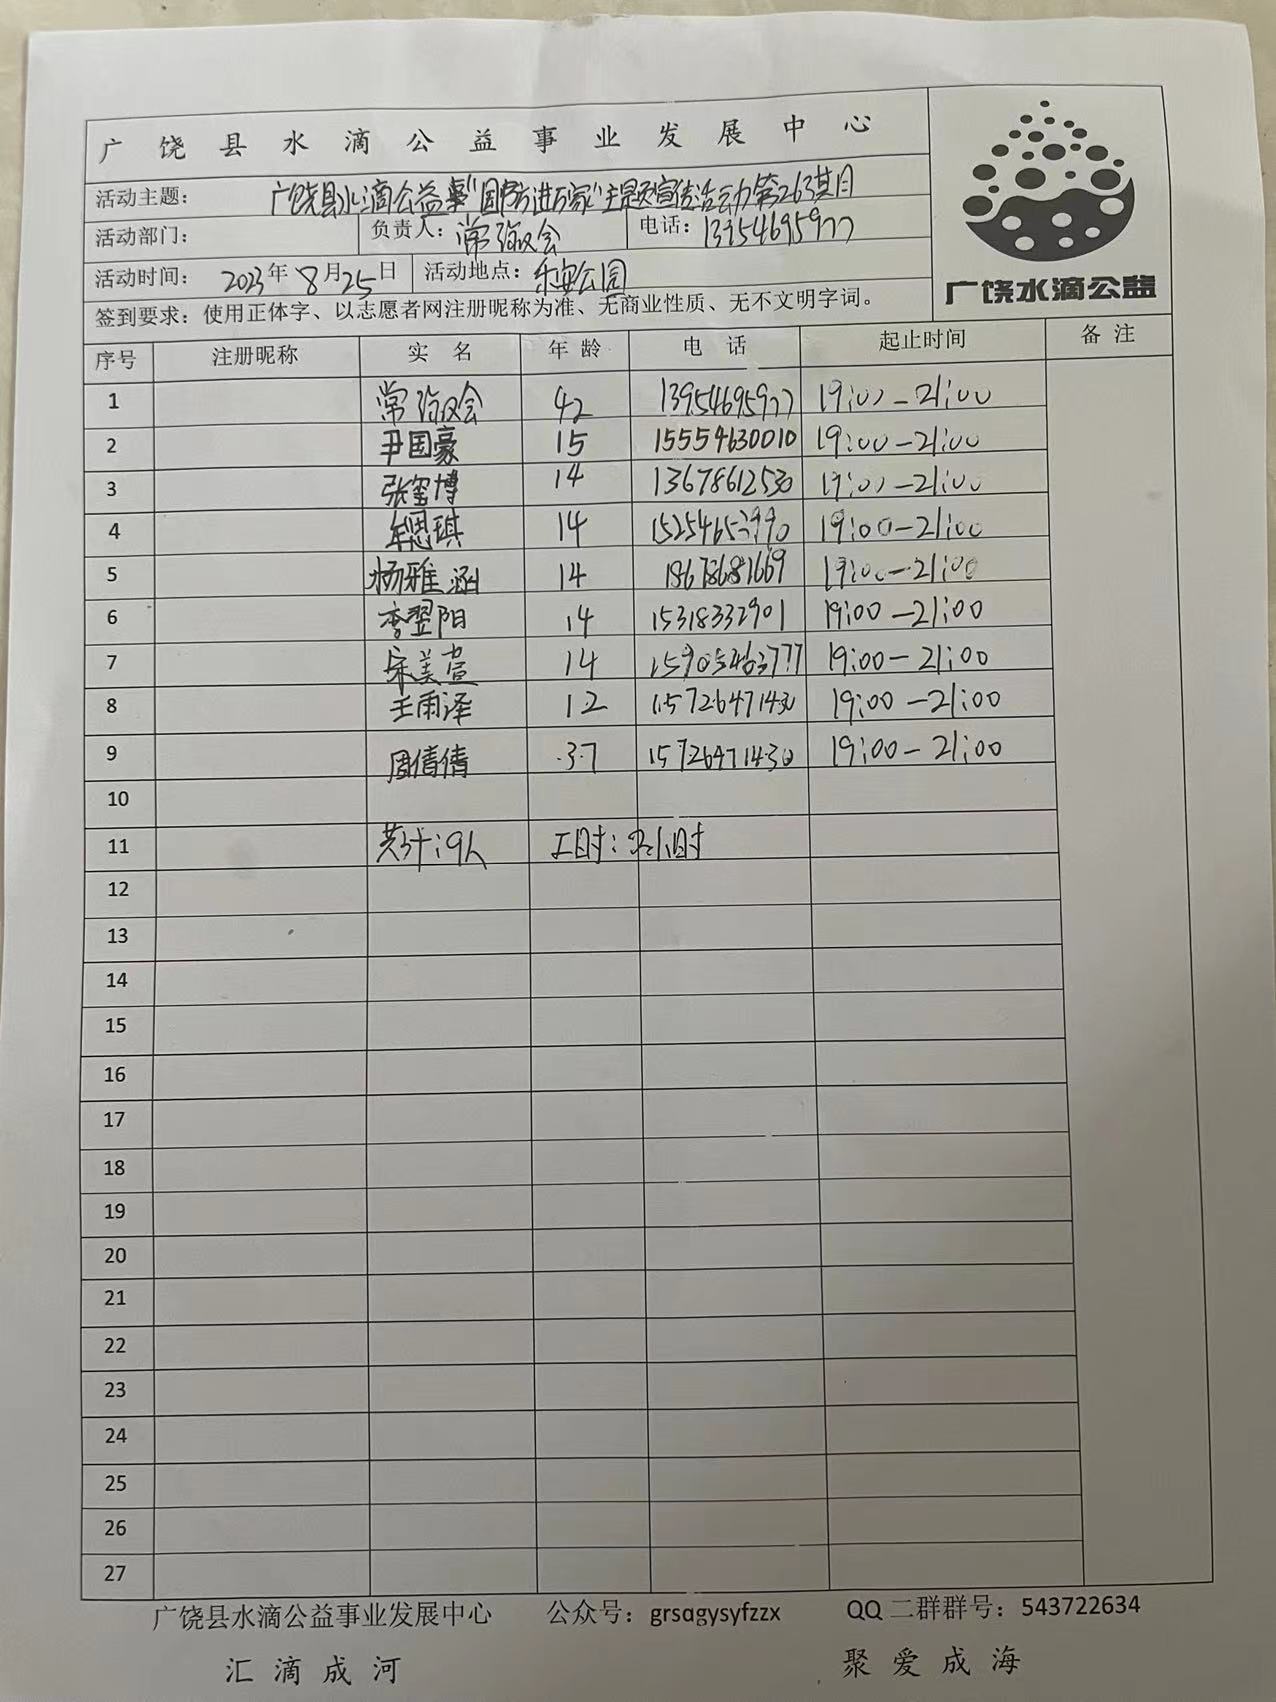 广饶县水滴公益事业发展中心
活动主题: 广饶县水滴公益事"国防进万家"主题宣传活动第263期
活动部门: 负责人: 常海会 电话: 13954695977
活动时间: 2023年8月25日 活动地点: 乐安公园
广饶水滴公益
签到要求: 使用正体字、以志愿者网注册昵称为准、无商业性质、无不文明字词。
序号 注册昵称 实名 年龄 电话 起止时间 备注
1 常 会 42 13954695977 19:00-21:00
2 尹国豪 15 15554630010 19:00-21:00
3 张玺博 14 13678612530 19:00-21:00
4 牟思琪 14 19:00-21:00
5 杨雅涵 14 18678681669 19:00-21:00
6 李翌阳 14 15318332901 19:00-21:00
7 宋美萱 14 15905463777 19:00-21:00
8 王雨泽 12 15726471430 19:00-21:00
9 周倩倩 37 15726471430 19:00-21:00
10
11 共计:9人 工时: 小时
12
13
14
15
16
17
18
19
20
21
22
23
24
25
26
27
广饶县水滴公益事业发展中心 公众号: grsgysyfzzx QQ 二群群号: 543722634
汇滴成河 聚爱成海